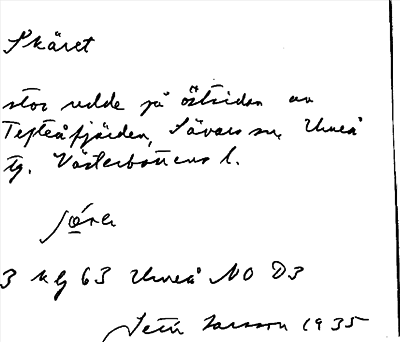 Skäret
stor udde på östsidan av
Tefteåfjärden, Sävars sn, Umeå
tg. Västerbottens l.
3 kg 63 Umeå NO D3
Larsson 1935